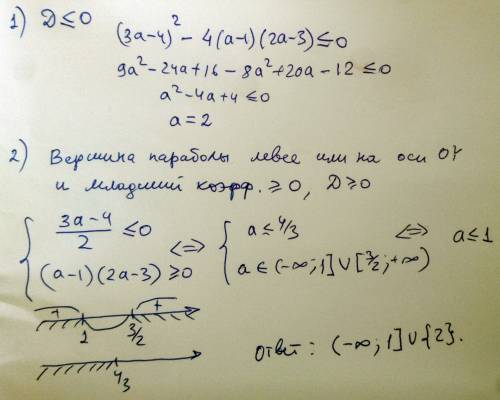 1) D ≤ 0
(3a-4)² - 4(a-1)(2a-3) ≤ 0
9a² - 24a + 16 - 8a² + 20a - 12 ≤ 0
a² - 4a + 4 ≤ 0
a = 2
2) Вершина параболы левее или на оси OY
и младший коэфф. ≥ 0, D ≥ 0
{ (3a-4)/2 ≤ 0 <=> { a ≤ 4/3 <=> a ≤ 1
(a-1)(2a-3) ≥ 0 a ∈ (-∞; 1] ∪ [3/2; +∞)
+ +
1 3/2
4/3
Ответ: (-∞; 1] ∪ {2}.